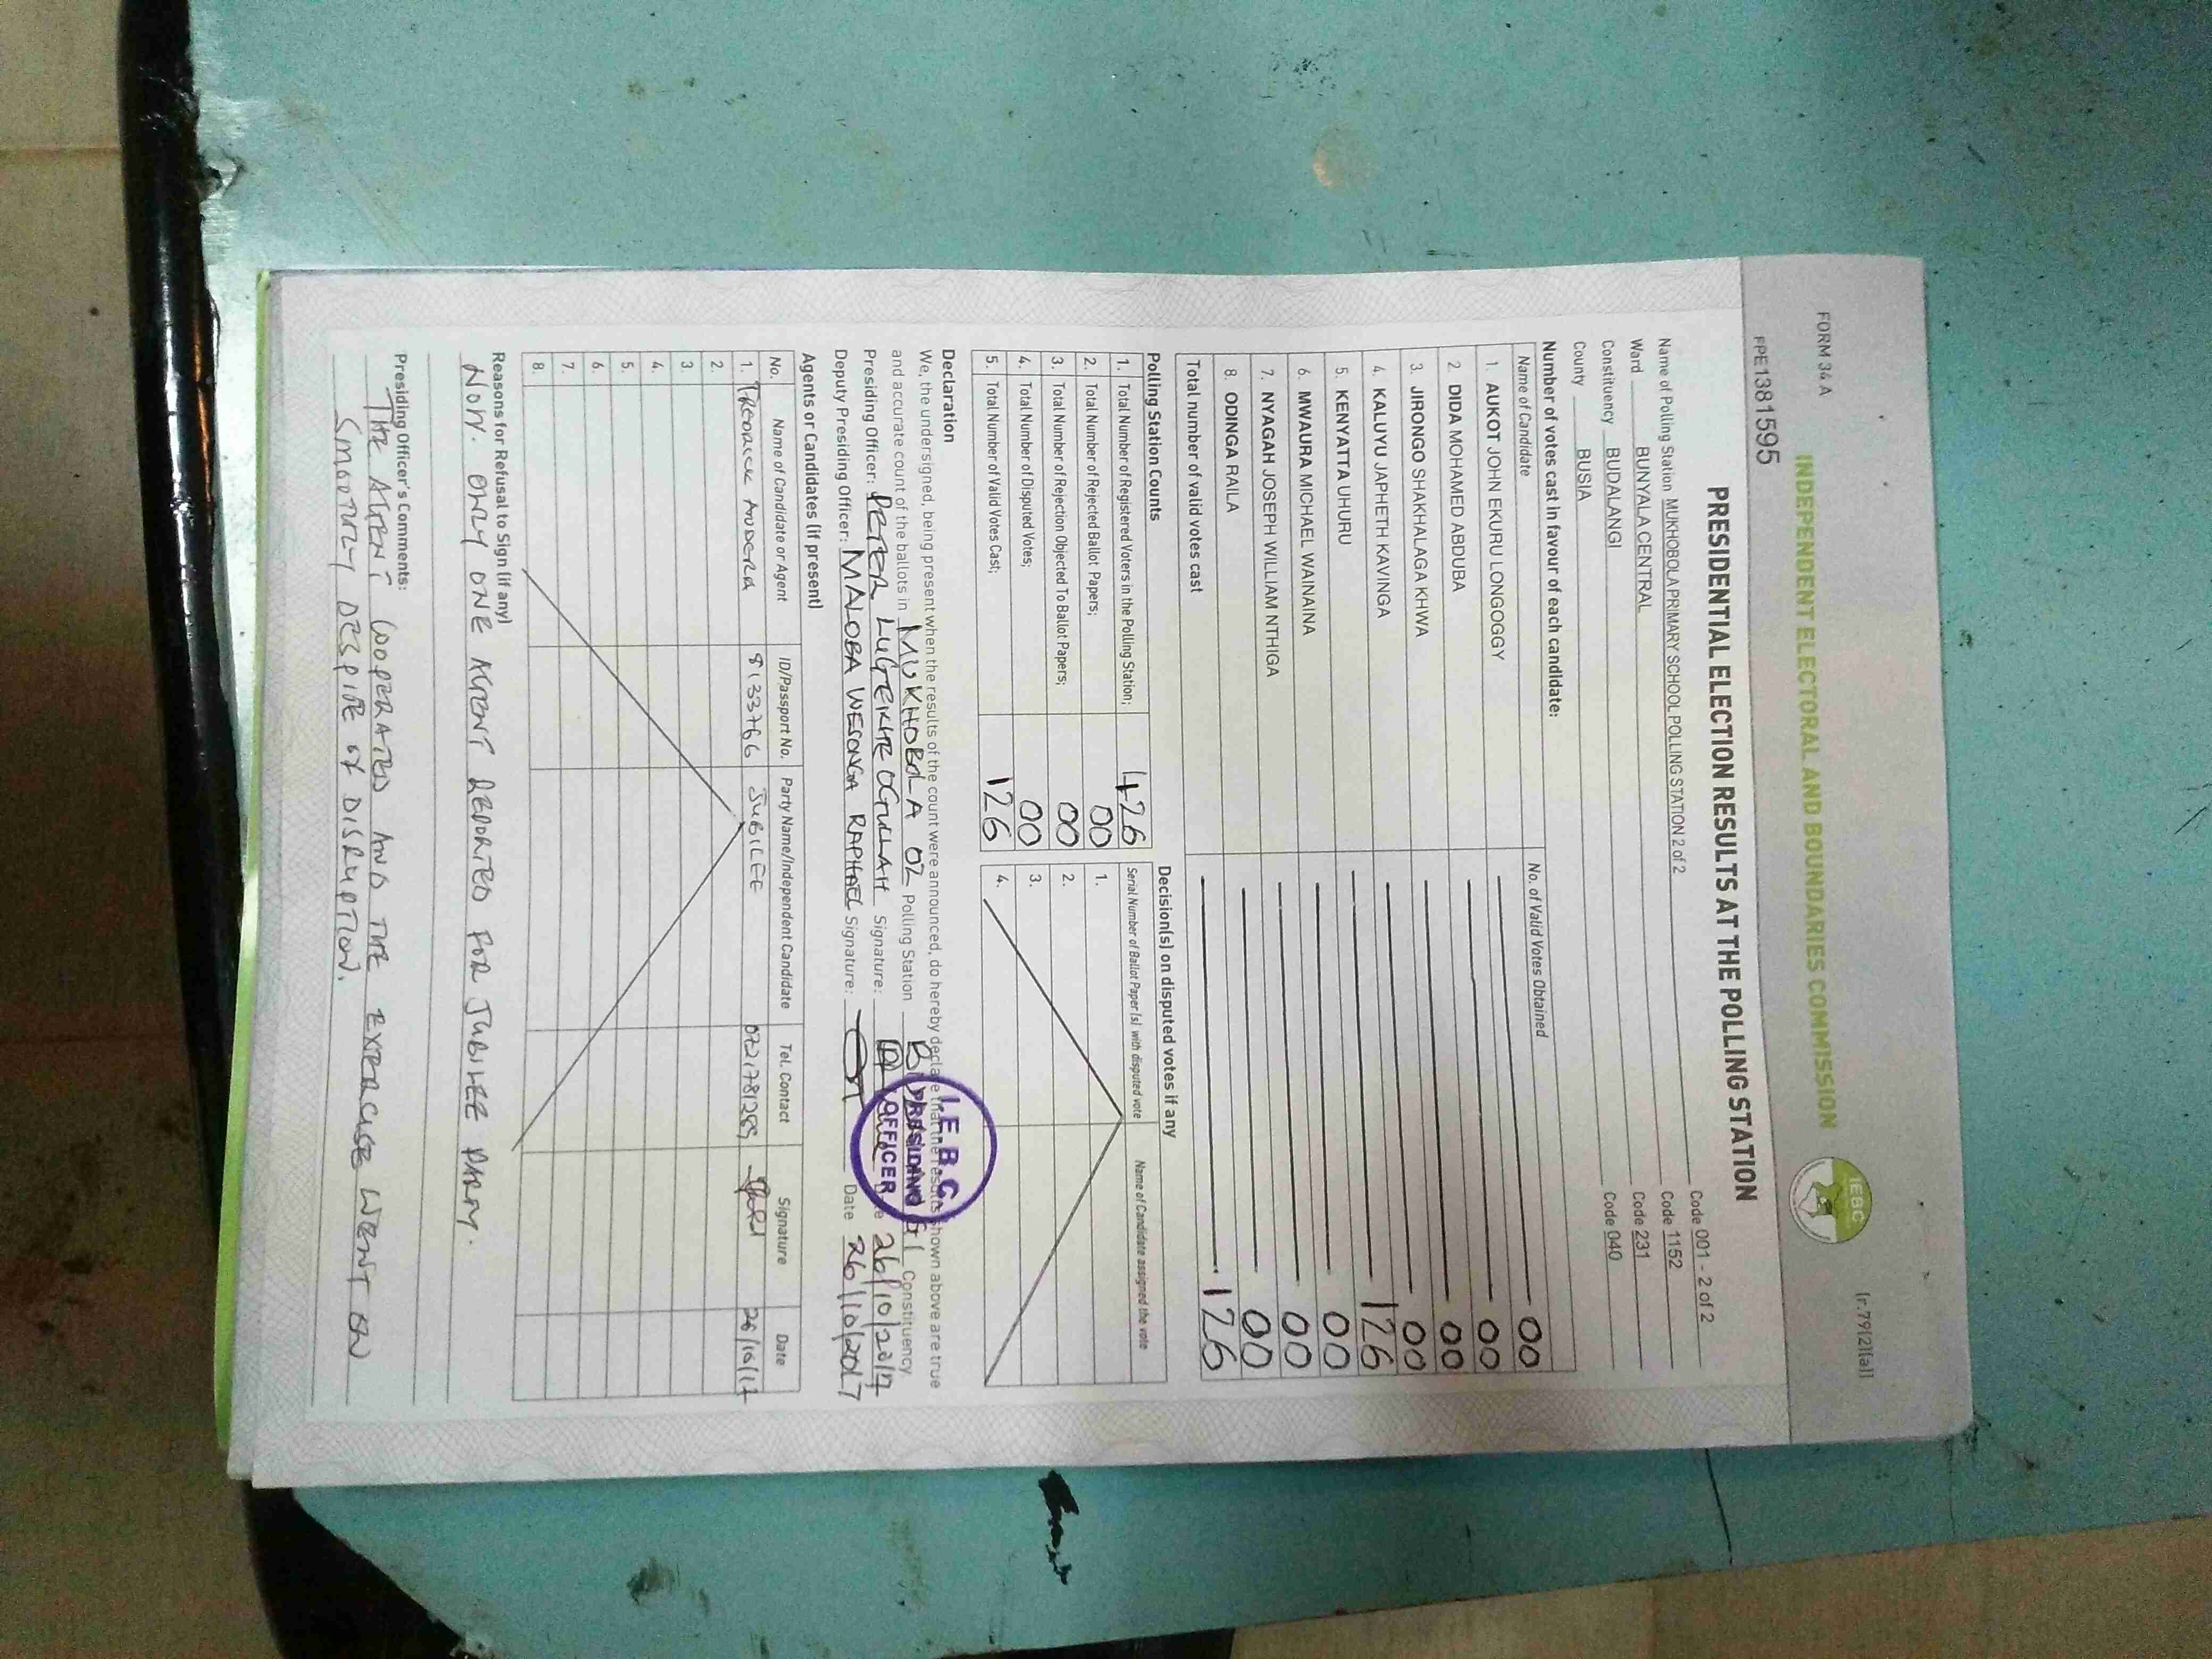 FORM 34 A
(r.79(2)(a))
INDEPENDENT ELECTORAL AND BOUNDARIES COMMISSION
IEBC
FPE1381595
PRESIDENTIAL ELECTION RESULTS AT THE POLLING STATION
Name of Polling Station MUKHOBOLA PRIMARY SCHOOL POLLING STATION 2 of 2 Code 001 - 2 of 2
Ward BUNYALA CENTRAL Code 1152
Constituency BUDALANGI Code 231
County BUSIA Code 040
Number of votes cast in favour of each candidate:
Name of Candidate No. of Valid Votes Obtained
1. AUKOT JOHN EKURU LONGOGGY 00
2. DIDA MOHAMED ABDUBA 00
3. JIRONGO SHAKHALAGA KHWA 00
4. KALUYU JAPHETH KAVINGA 00
5. KENYATTA UHURU 126
6. MWAURA MICHAEL WAINAINA 00
7. NYAGAH JOSEPH WILLIAM NTHIGA 00
8. ODINGA RAILA 00
Total number of valid votes cast 126
Polling Station Counts
1. Total Number of Registered Voters in the Polling Station; 426
2. Total Number of Rejected Ballot Papers; 00
3. Total Number of Rejection Objected To Ballot Papers; 00
4. Total Number of Disputed Votes; 00
5. Total Number of Valid Votes Cast; 126
Decision(s) on disputed votes if any
Serial Number of Ballot Paper(s) with disputed vote Name of Candidate assigned the vote
1.
2.
3.
4.
Declaration
We, the undersigned, being present when the results of the count were announced, do hereby declare that the results shown above are true
and accurate count of the ballots in MUKHOBOLA 02 Polling Station Constituency
Presiding Officer: PETER Signature: Date 26/10/2017
Deputy Presiding Officer: MALOBA WESONGA RAPHAEL Signature: Date 26/10/2017
I.E.B.C
PRESIDING
OFFICER
Agents or Candidates (if present)
No. Name of Candidate or Agent ID/Passport No. Party Name/Independent Candidate Tel. Contact Signature Date
1. 8133766 JUBILEE 0721781289 26/10/17
2
3
4.
5.
6.
7.
8.
Reasons for Refusal to Sign (if any)
ONLY ONE AGENT REPORTED FOR JUBILEE PARTY.
Presiding Officer's Comments:
THE AGENT COOPERATED AND THE EXERCISE WENT ON
SMOOTHLY DESPITE OF DISRUPTION.